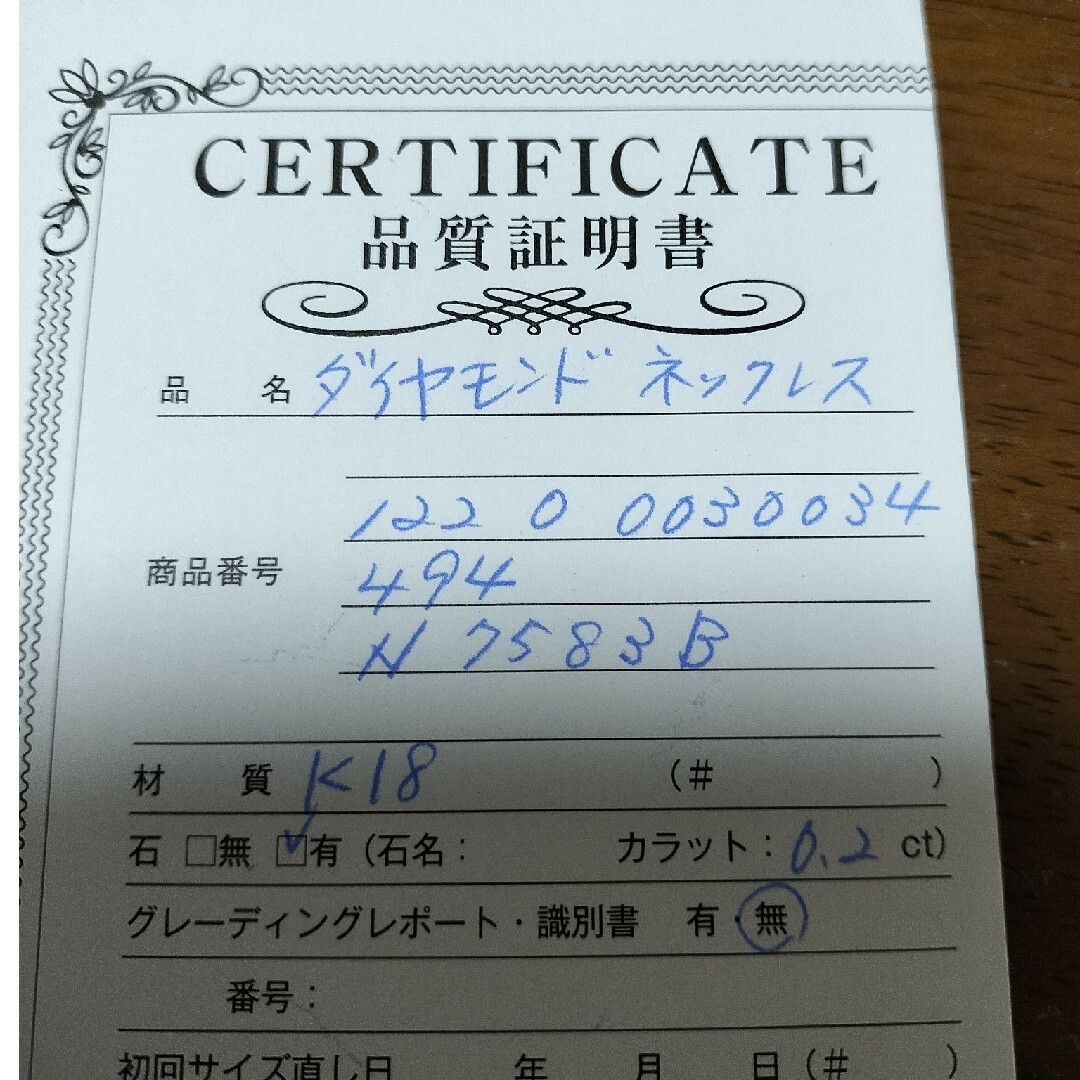 CERTIFICATE
品質証明書
品 名 ダイヤモンド ネックレス
商品番号
122 0 0030034
494
N 7583B
材 質 K18 (# )
石 □無 ☑有 (石名: カラット:0.2 ct)
グレーディングレポート・識別書 有・無
番号:
初回サイズ直し日 年 月 日 (# )